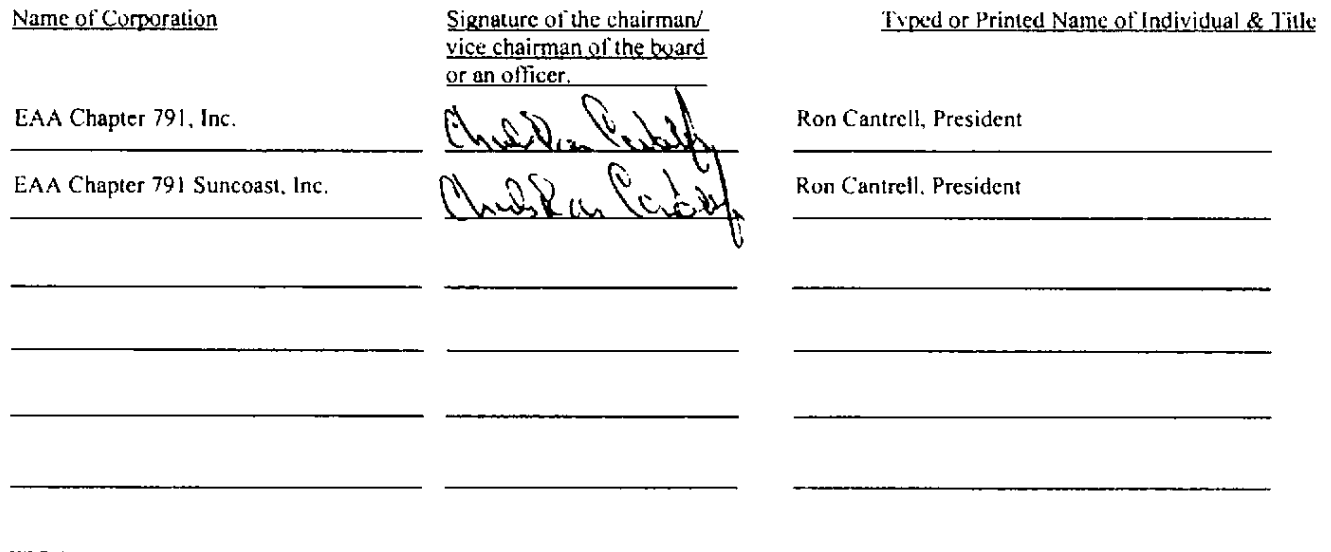 Name of Corporation
Signature of the chairman/
vice chairman of the board
or an officer.
Typed or Printed Name of Individual & Title
EAA Chapter 791, Inc.
Ron Cantrell, President
EAA Chapter 791 Suncoast, Inc.
Ron Cantrell, President